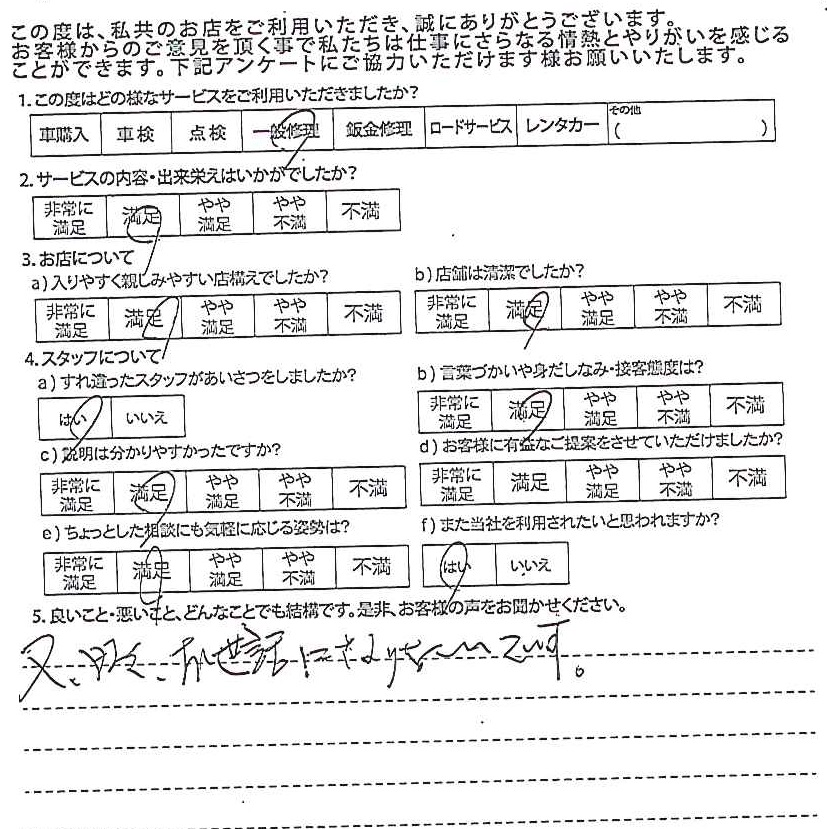 この度は、私共のお店をご利用いただき、誠にありがとうございます。
お客様からのご意見を頂く事で私たちは仕事にさらなる情熱とやりがいを感じる
ことができます。下記アンケートにご協力いただけます様お願いいたします。
1.この度はどの様なサービスをご利用いただきましたか?
車購入 車検 点検 一般修理 鈑金修理 ロードサービス レンタカー その他 ( )
2.サービスの内容・出来栄えはいかがでしたか?
非常に満足 満足 やや満足 やや不満 不満
3.お店について
a)入りやすく親しみやすい店構えでしたか?
非常に満足 満足 やや満足 やや不満 不満
b)店舗は清潔でしたか?
非常に満足 満足 やや満足 やや不満 不満
4.スタッフについて
a)すれ違ったスタッフがあいさつをしましたか?
はい いいえ
b)言葉づかいや身だしなみ・接客態度は?
非常に満足 満足 やや満足 やや不満 不満
c)説明は分かりやすかったですか?
非常に満足 満足 やや満足 やや不満 不満
d)お客様に有益なご提案をさせていただけましたか?
非常に満足 満足 やや満足 やや不満 不満
e)ちょっとした相談にも気軽に応じる姿勢は?
非常に満足 満足 やや満足 やや不満 不満
f)また当社を利用されたいと思われますか?
はい いいえ
5.良いこと・悪いこと、どんなことでも結構です。是非、お客様の声をお聞かせください。
又、 お世話になりたいです。